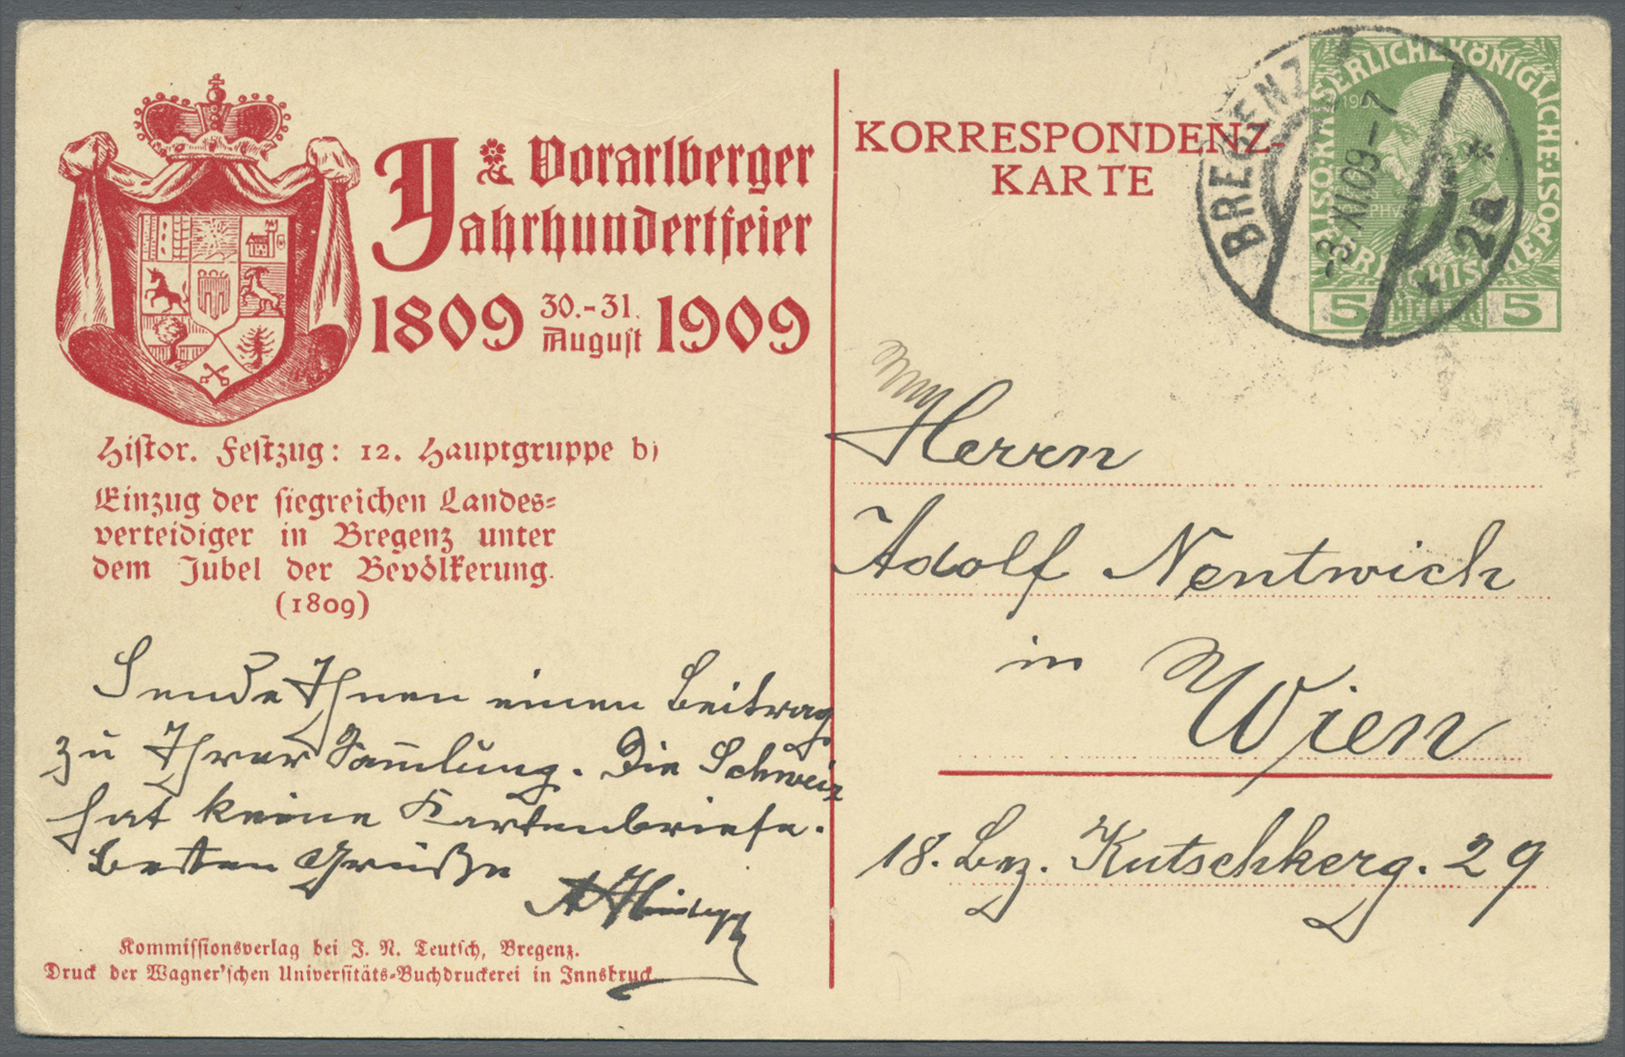 Vorarlberger
Jahrhundertfeier
1809 30.-31. August 1909
Histor. Festzug: 12. Hauptgruppe b)
Einzug der siegreichen Landes-
verteidiger in Bregenz unter
dem Jubel der Bevölkerung.
(1809)
Sende Ihnen einen Beitrag
zu Ihrer Sam̄lung. Die Schweiz
hat keine Kartenbriefe.
Besten Grüße
Kommissionsverlag bei J. N. Teutsch, Bregenz.
Druck der Wagner'schen Universitäts-Buchdruckerei in Innsbruck
KORRESPONDENZ-
KARTE
KAISERLICHE KÖNIGLICHE ÖSTERREICHISCHE POST
5 HELLER 5
BREGENZ 1
-8.XI.09-7
* 2a *
Herrn
Adolf Nentwich
in Wien
18. Bez. Kutschkerg. 29